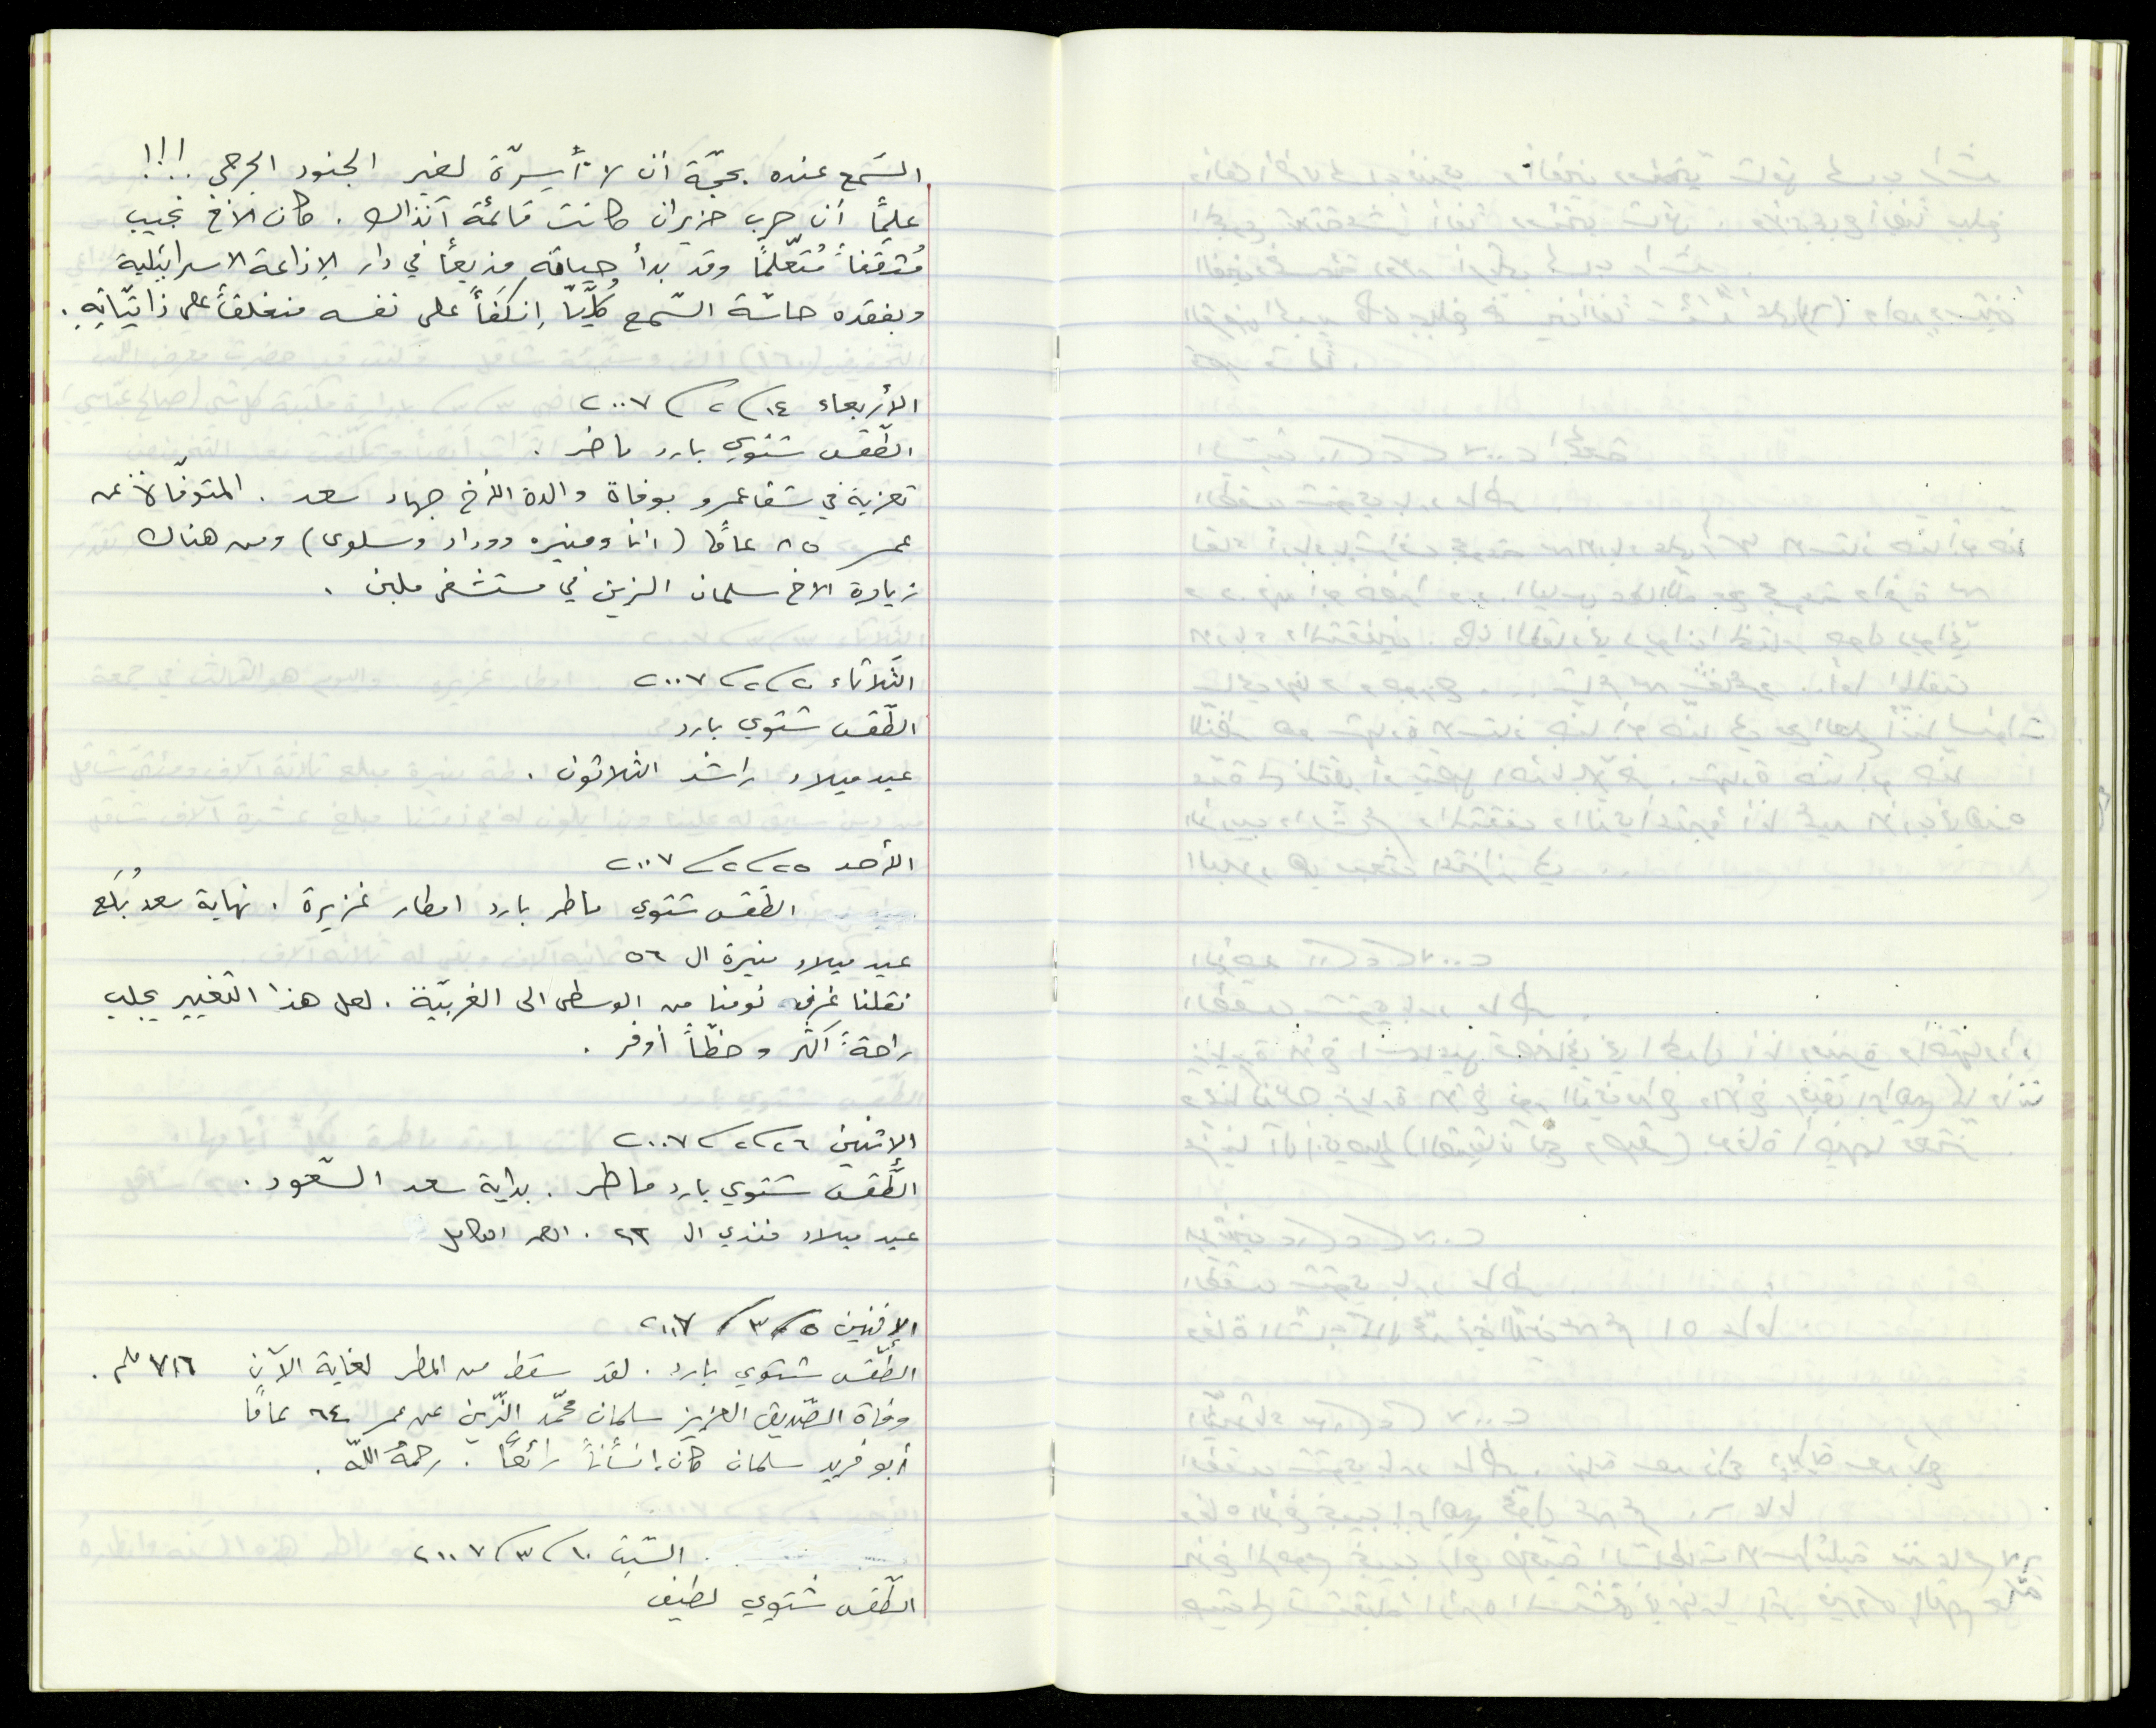 السّمع عنده بحجّة أن لا أسِرّة لغير الجنود الجرحى !!!
علمًا أن حرب حزيران كانت قائمة آنذاك . كان الأخ نجيب
مُثقفاً مُتعلّمًا وقد بدأ حياته مذيعاً في دار الإذاعة الاسرائيلية
وبفقده حاسّة السّمع كُلّيّاً إنكفأ على نفسه منغلقاً على ذاتيّاتِهِ .
الأربعاء ١٤ / ٢ / ٢٠٠٧
الطّقس شتوي بارد ماطر .
تعزية في شفاعمرو بوفاة والدة الأخ جهاد سعد . المتوفّاة عن
عمر ٨٥ عامًا ( انا ومنيره ووداد وسلوى ) ومن هناك
زيارة الاخ سلمان الزين في مستشفى ملبن .
الثّلاثاء ٢٠ / ٢ / ٢٠٠٧
الطّقس شتوي بارد
عيد ميلاد راشد الثلاثون .
الأحد ٢٥ / ٢ / ٢٠٠٧
الطّقس شتوي ماطر بارد امطار غزيرة . نهاية سعد بُلَع
عيد ميلاد منيرة ال ٥٦
نقلنا غرفة نومنا من الوسطى الى الغربيّة . لعل هذا التغيير يجلب
راحةً اكثر وحظّاً أوفر .
الإثنين ٢٦ / ٢ / ٢٠٠٧
الطّقس شتوي بارد ماطر . بداية سعد السّعود .
عيد ميلاد فندي ال ٢٣ .
الإثنين ٥ / ٣ / ٢٠٠٧
الطّقس شتوي بارد . لقد سقط من المطر لغاية الآن ٧١٦ ملم .
وفاة الصّديق العزيز سلمان محمّد الزّين عن عمر ٦٤ عامًا
أبو فريد سلمان كان إنسانًا رائعًا . رحمهُ اللّه .
السّبت ١٠ / ٣ / ٢٠٠٧
الطّقس شتوي لطيف